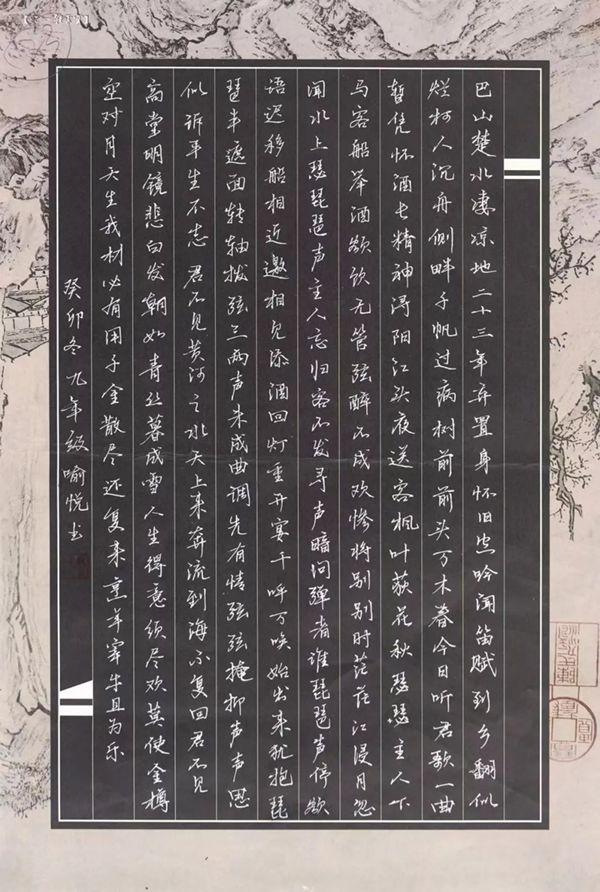 巴山楚水凄凉地二十三年弃置身怀旧空吟闻笛赋到乡翻似
烂柯人沉舟侧畔千帆过病树前前头万木春今日听君歌一曲
暂凭怀酒长精神浔阳江头夜送客枫叶荻花秋瑟瑟主人下
马客船举酒欲饮无管弦醉不成欢惨将别别时茫茫江浸月忽
闻水上瑟琵琶声主人忘归客不发寻声暗问弹者谁琵琶声停欲
语迟移船相近邀相见添酒回灯重开宴千呼万唤始出来犹抱琵
琶半遮面转轴拨弦三两声未成曲调先有情弦弦掩抑声声思
似诉平生不志 君不见黄河之水天上来奔流到海不复回君不见
高堂明镜悲白发朝如青丝暮成雪人生得意须尽欢莫使金樽
空对月天生我材必有用千金散尽还复来烹羊宰牛且为乐
癸卯冬九年级喻悦书